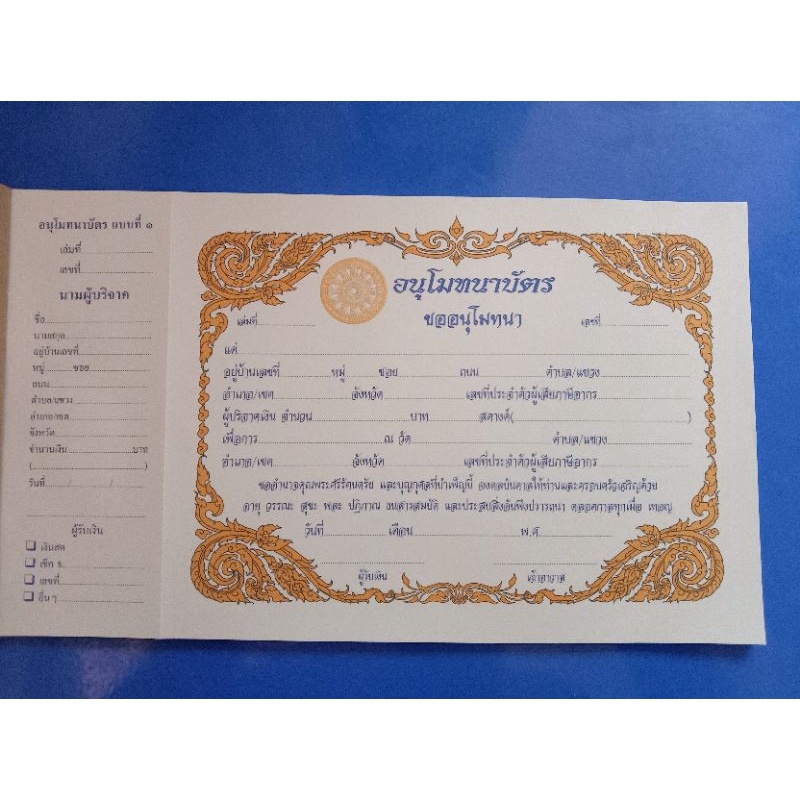 อนุโมทนาบัตร แบบที่ ๑
เล่มที่
เลขที่
นามผู้บริจาค
ชื่อ
นามสกุล
อยู่บ้านเลขที่
หมู่ ซอย
ถนน
ตำบล/แขวง
อำเภอ/เขต
จังหวัด
จำนวนเงิน บาท
( )
วันที่ / /
ผู้รับเงิน
เงินสด
เช็ค ธ.
เลขที่
อื่น ๆ
อนุโมทนาบัตร
ขออนุโมทนา
เล่มที่ เลขที่
แด่
อยู่บ้านเลขที่ หมู่ ซอย ถนน ตำบล/แขวง
อำเภอ/เขต จังหวัด เลขที่ประจำตัวผู้เสียภาษีอากร
ผู้บริจาคเงิน จำนวน บาท สตางค์( )
เพื่อการ ณ วัด ตำบล/แขวง
อำเภอ/เขต จังหวัด เลขที่ประจำตัวผู้เสียภาษีอากร
ขออำนาจคุณพระศรีรัตนตรัย และบุญกุศลที่บำเพ็ญนี้ จงดลบันดาลให้ท่านและครอบครัวเจริญด้วย
อายุ วรรณะ สุขะ พละ ปฏิภาณ ธนสารสมบัติ และประสบสิ่งอันพึงปรารถนา ตลอดกาลทุกเมื่อ เทอญ
วันที่ เดือน พ.ศ.
ผู้รับเงิน เจ้าอาวาส